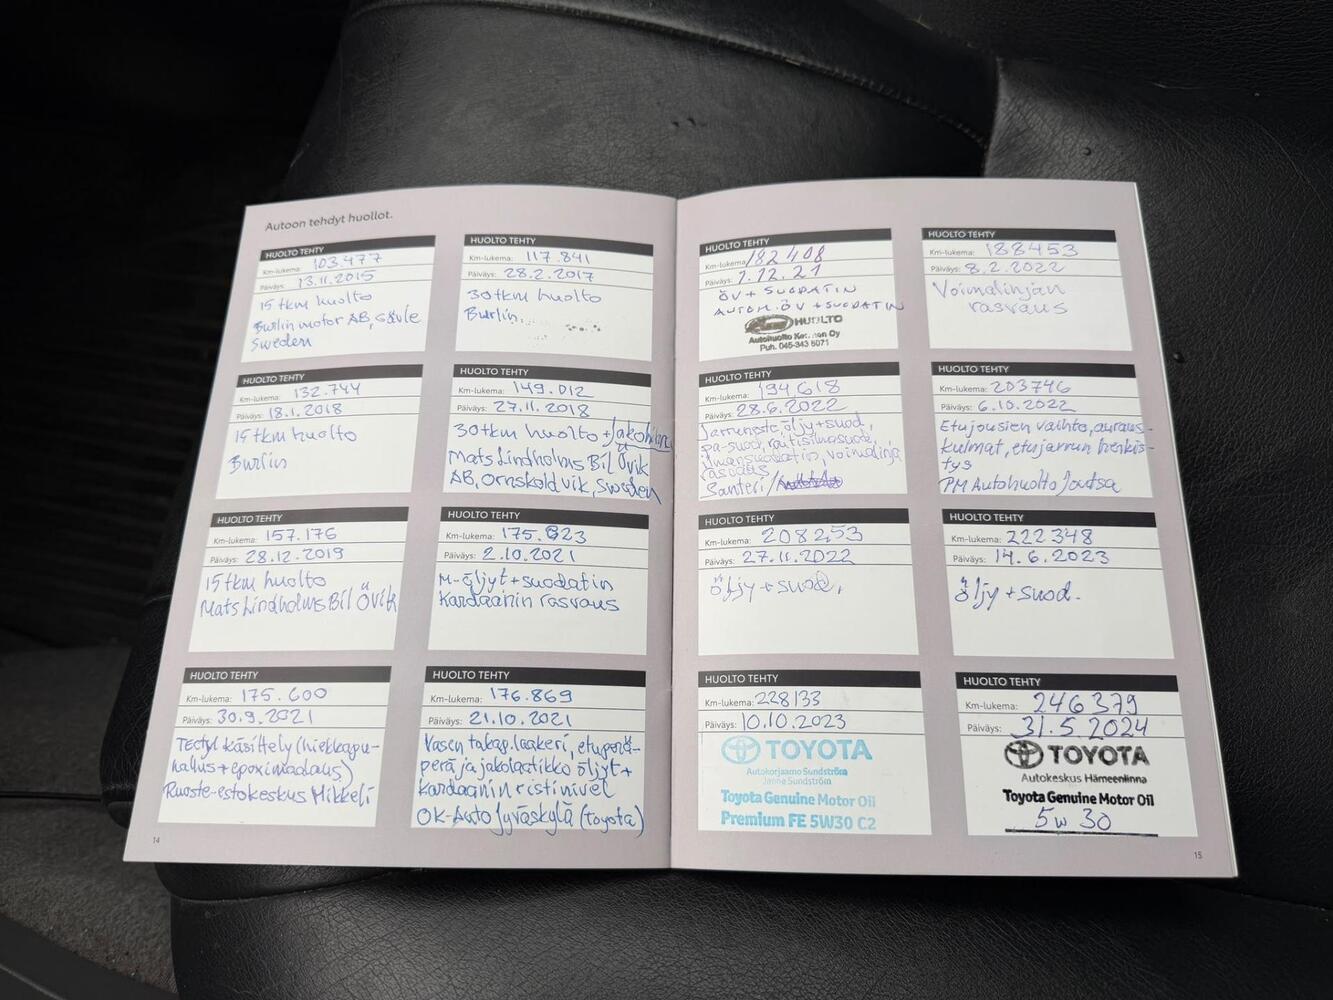 Autoon tehdyt huollot.
HUOLTO TEHTY
Km-lukema: 103.477
Päiväys: 13.11.2015
15tkm huolto
Burlin motor AB, Gävle
Sweden
HUOLTO TEHTY
Km-lukema: 117.841
Päiväys: 28.2.2017
30tkm huolto
Burlin
HUOLTO TEHTY
Km-lukema: 132.744
Päiväys: 18.1.2018
15tkm huolto
Burlin
HUOLTO TEHTY
Km-lukema: 149.012
Päiväys: 27.11.2018
30tkm huolto + Jakohihna
Mats Lindholms Bil Övik
AB, Ornskoldvik, Sweden
HUOLTO TEHTY
Km-lukema: 157.176
Päiväys: 28.12.2019
15tkm huolto
Mats Lindholms Bil Övik
HUOLTO TEHTY
Km-lukema: 175.823
Päiväys: 2.10.2021
M-öljyt + suodatin
Kardaanin rasvaus
HUOLTO TEHTY
Km-lukema: 175.600
Päiväys: 30.9.2021
Tectyl käsittely (hiekkapu-
hallus + epoximaalaus)
Ruoste-estokeskus Mikkeli
HUOLTO TEHTY
Km-lukema: 176.869
Päiväys: 21.10.2021
Vasen takap. laakeri, etuperä-
perä ja jakolaatikko öljyt +
kardaanin ristinivel
OK-Auto Jyväskylä (Toyota)
14
HUOLTO TEHTY
Km-lukema: 182408
Päiväys: 7.12.21
ÖV + SUODATIN
AUTOM. ÖV + SUODATIN
HUOLTO
Autohuolto Oy
Puh. 045-343 5071
HUOLTO TEHTY
Km-lukema: 188453
Päiväys: 8.2.2022
Voimalinjan
rasvaus
HUOLTO TEHTY
Km-lukema: 194618
Päiväys: 28.6.2022
Jarruneste, öljy + suod,
pa-suod, raitisilmasuod,
ilmansuodatin, voimalinja
rasvaus
Santeri /
HUOLTO TEHTY
Km-lukema: 203746
Päiväys: 6.10.2022
Etujousien vaihto, auraus-
kulmat, etujarrun herkis-
tys
PM Autohuolto Joutsa
HUOLTO TEHTY
Km-lukema: 208253
Päiväys: 27.11.2022
öljy + suod.
HUOLTO TEHTY
Km-lukema: 222348
Päiväys: 14.6.2023
öljy + suod.
HUOLTO TEHTY
Km-lukema: 228133
Päiväys: 10.10.2023
TOYOTA
Autokorjaamo Sundström
Janne Sundström
Toyota Genuine Motor Oil
Premium FE 5W30 C2
HUOLTO TEHTY
Km-lukema: 246379
Päiväys: 31.5.2024
TOYOTA
Autokeskus Hämeenlinna
Toyota Genuine Motor Oil
5W 30
15